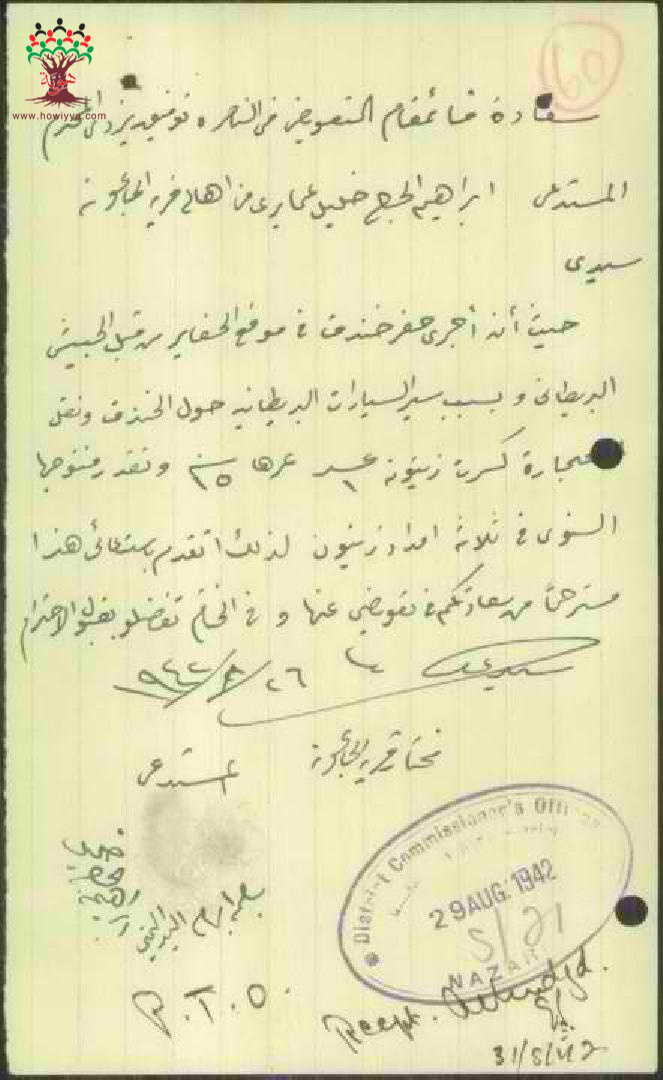 60
www.howiyya.com
سعادة قائمقام التعويض في الناصره توفيق يزدي المحترم
المستدعي ابراهيم الحج خليل عمايري من اهالي قرية الجاعونة
سيدي
حيث أنه أجرى حفر خندق في موقع الحفاير من قبل الجيش
البريطاني وبسبب سير السيارات البريطانيه حول الخندق ونقل
حجارة كسرت زيتونه عدد ١ عمرها ١٥ سنه ونقدر منتوجها
السنوي في ثلاثة امداد زيتون لذلك اتقدم باستدعائي هذا
مسترحماً من سعادتكم في تعويضي عنها و في الختام تفضلو بقبول الاحترام
سيدي ٢٦/٨/٩٤٢
مختار قرية الجاعونة
المستدعي
بصمة ابهام اليد اليمنى
District Commissioner's Office
29 AUG. 1942
S/21
NAZAR
P.T.O.
Recpt.
31/8/42